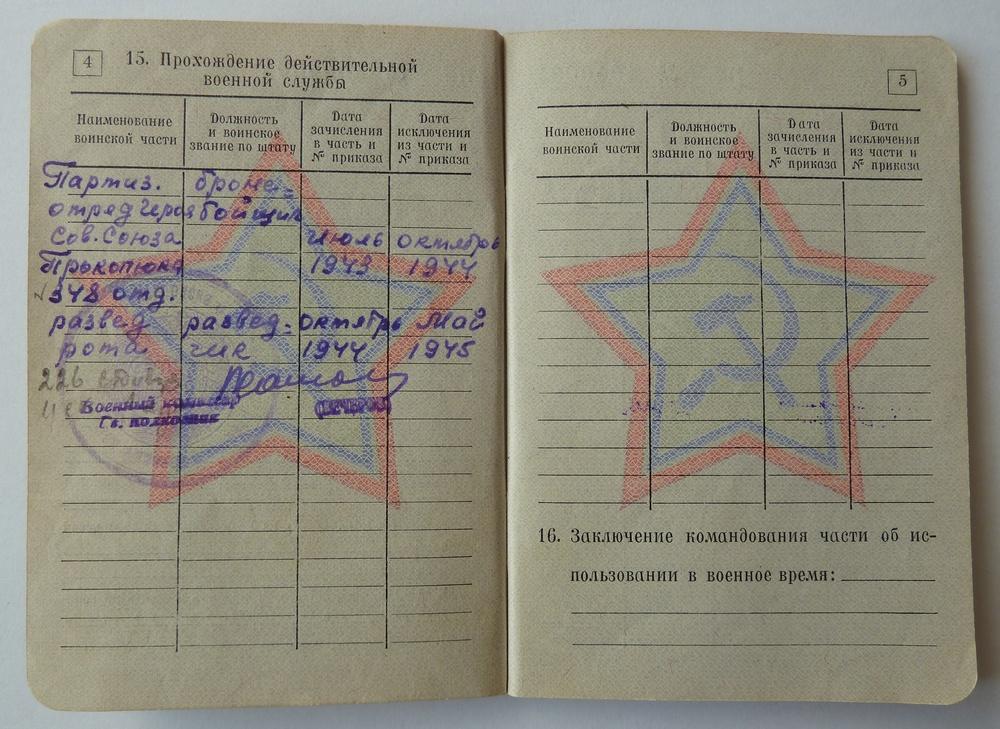 4
15. Прохождение действительной
военной службы
Наименование
воинской части
Должность
и воинское
звание по штату
Дата
зачисления
в часть и
№ приказа
Дата
исключения
из части и
№ приказа
Партиз. броне-
отред Героя бойщик
Сов. Союза июль октябрь
Прокопюка 1943 1944
348 отд.
развед развед- октябрь Май
рота чик 1944 1945
226
Военный комиссар
Гв. полковник
5
Наименование
воинской части
Должность
и воинское
звание по штату
Дата
зачисления
в часть и
№ приказа
Дата
исключения
из части и
№ приказа
16. Заключение командования части об ис-
пользовании в военное время: